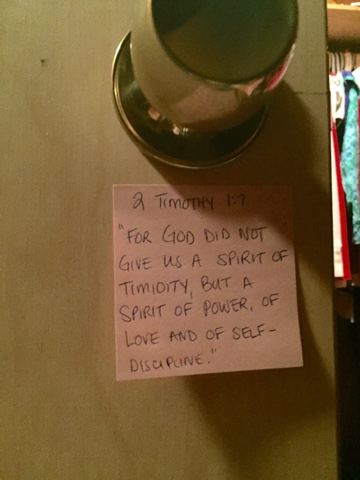 2 TIMOTHY 1:7
"FOR GOD DID NOT
GIVE US A SPIRIT OF
TIMIDITY, BUT A
SPIRIT OF POWER, OF
LOVE AND OF SELF-
DISCIPLINE."